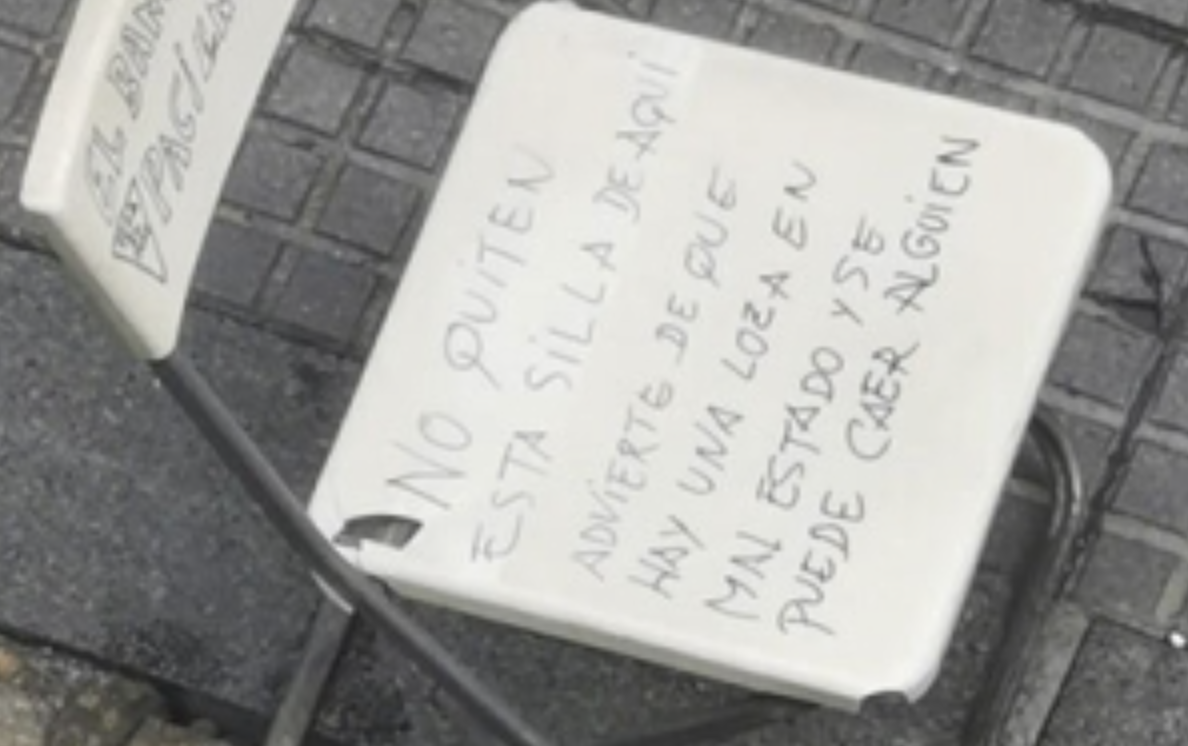 NO QUITEN
ESTA SILLA DE AQUI
ADVIERTE DE QUE
HAY UNA LOZA EN
MAL ESTADO Y SE
PUEDE CAER ALGUIEN
EL